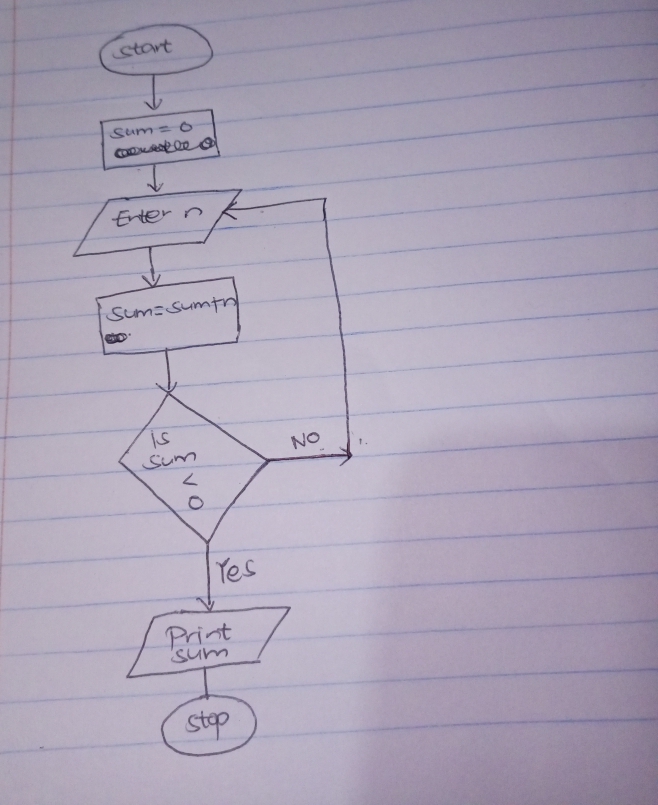 start
sum = 0
Enter n
sum=sum+n
is
sum
<
0
NO
Yes
Print
sum
stop